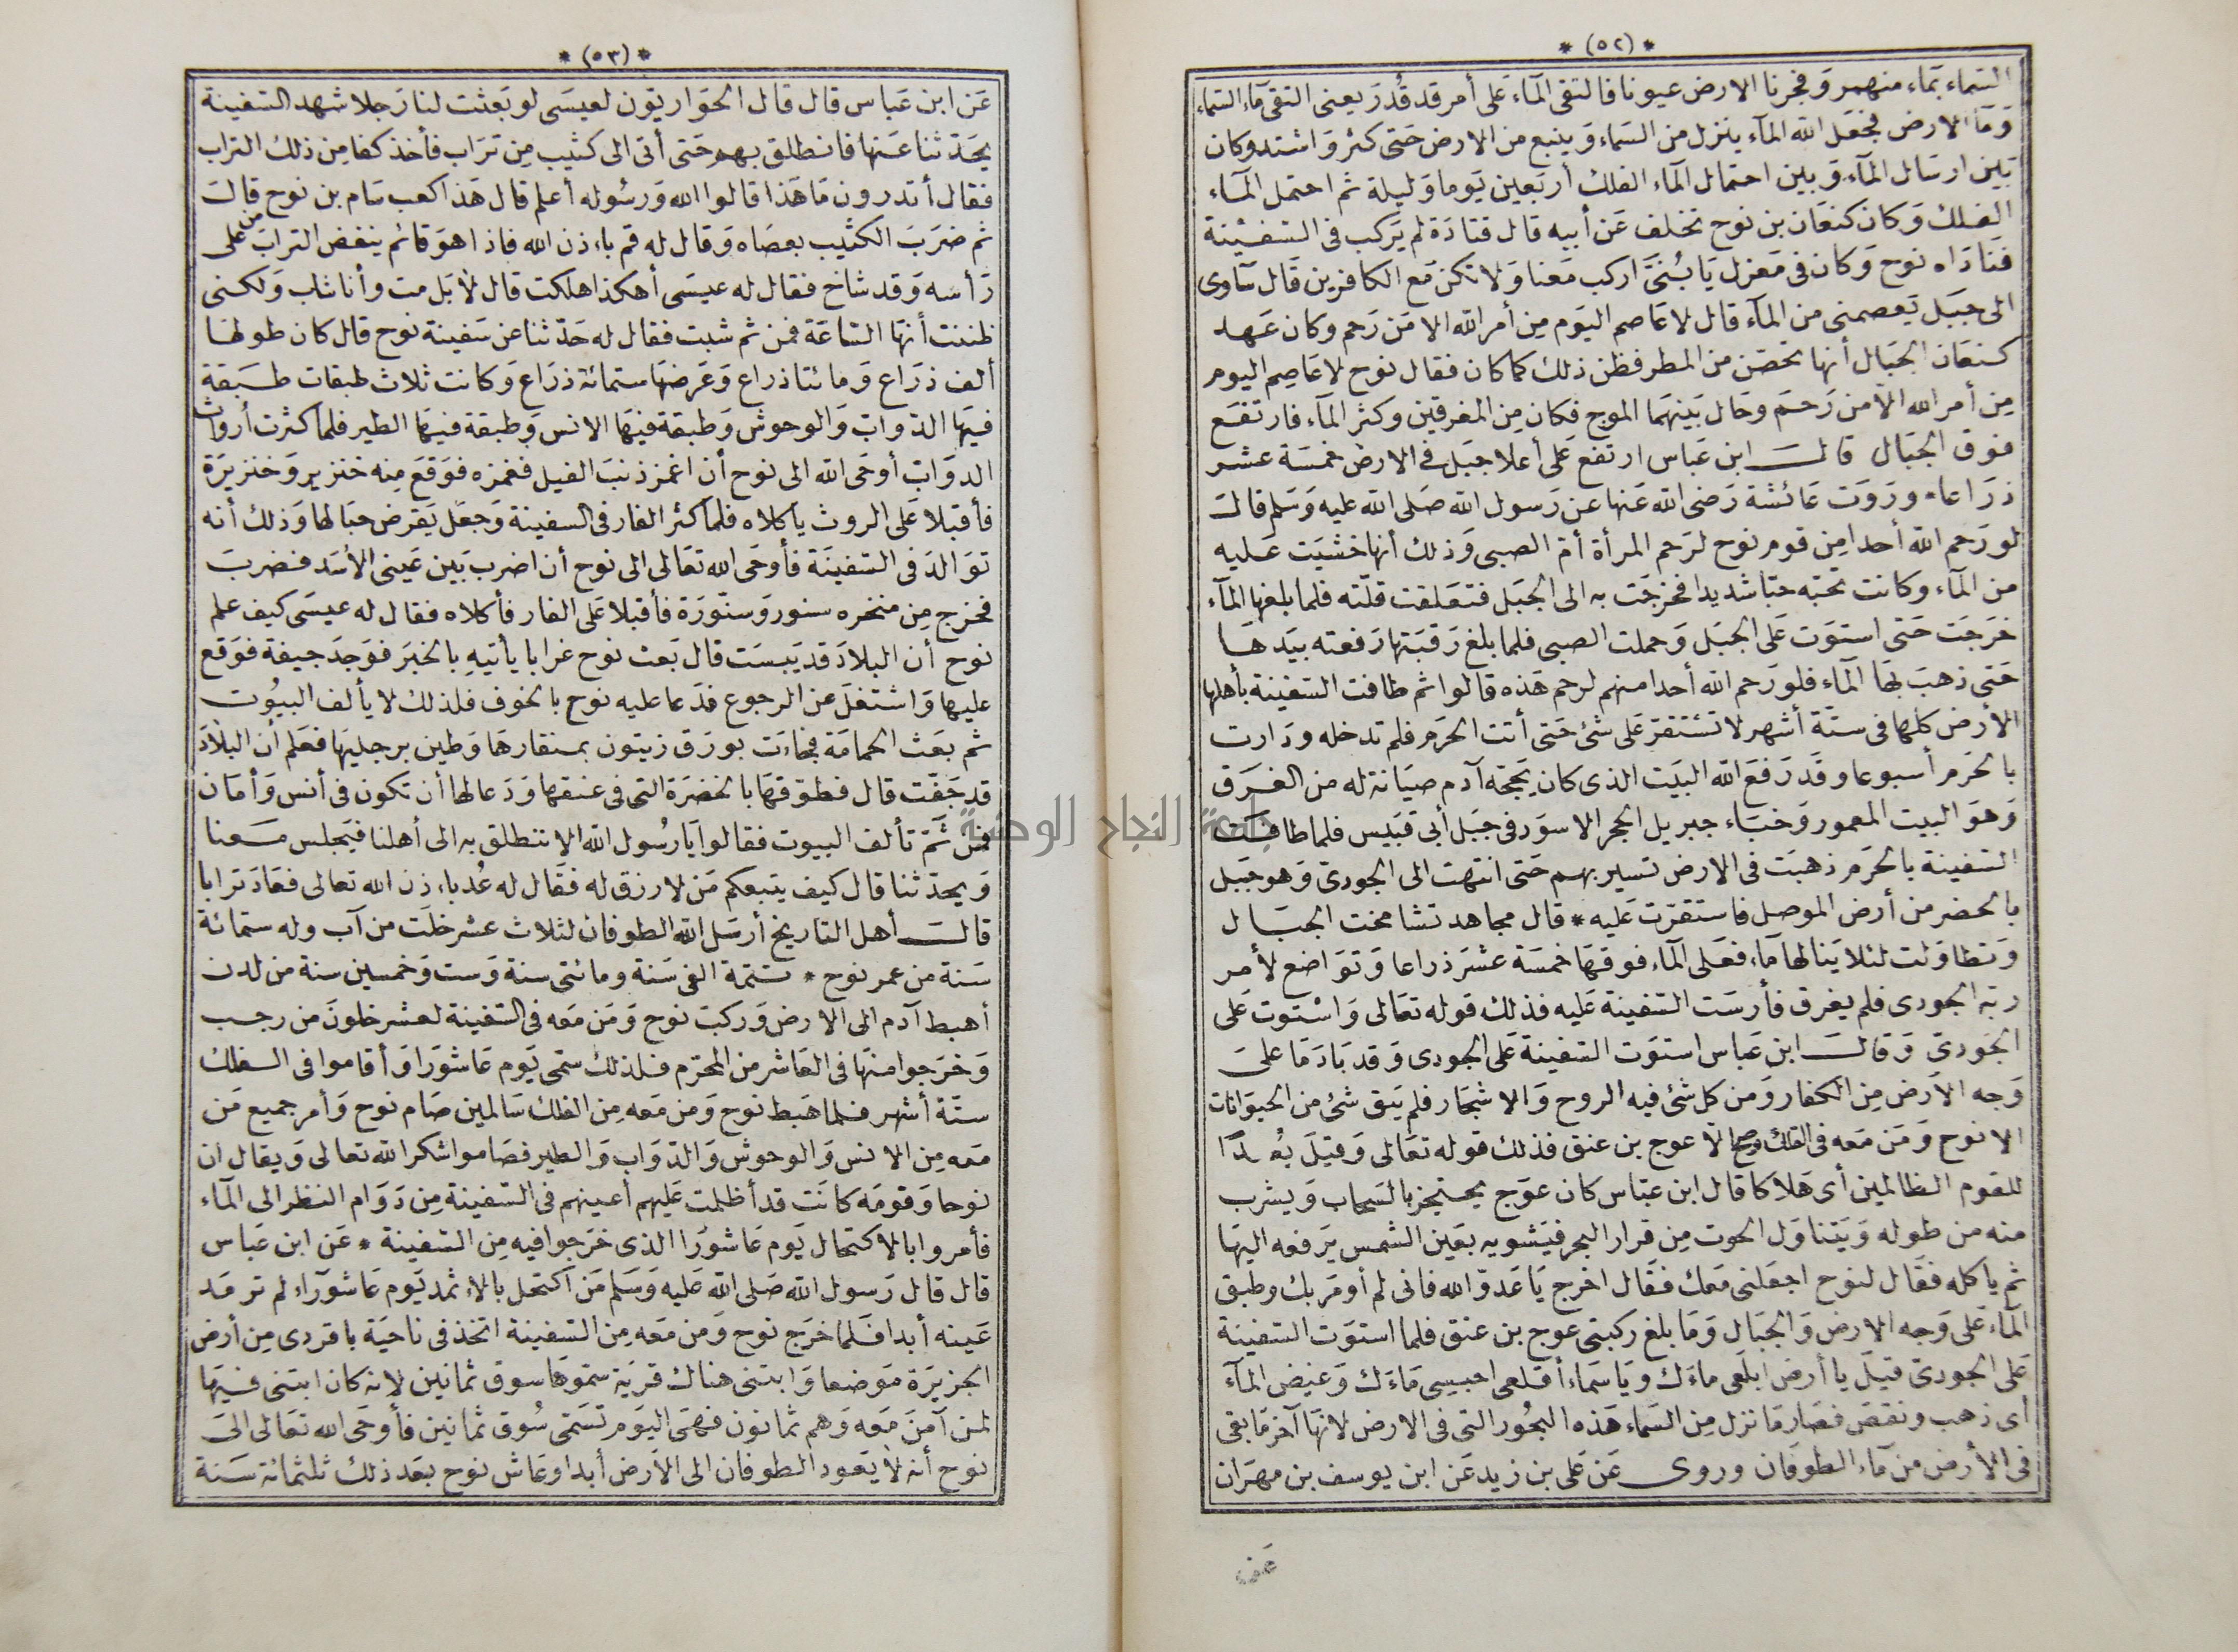 * (٥٢) *
السماء بماء منهمر وفجرنا الارض عيونا فالتقى المآء على أمر قد قُدر يعنى التقى مآء السماء
ومآ الارض فجعل الله المآء ينزل من السماء وينبع من الارض حتى كثر واشتد وكان
بين ارسال المآء وبين احتمال المآء الفلك أربعين يوما وليلة ثم احتمل المآء
الفلك وكان كنعان بن نوح تخلف عن أبيه قال قتادة لم يركب فى السفينة
فناداه نوح وكان فى معزل يا بُنىّ اركب معنا ولا تكن مع الكافرين قال سآوى
الى جبل يعصمنى من المآء قال لا عاصم اليوم من أمر الله الا من رحم وكان عهد
كنعان الجبال أنها تحصن من المطر فظن ذلك كما كان فقال نوح لا عاصم اليوم
من أمر الله الا من رحم وحال بينهما الموج فكان من المغرقين وكثر المآء فارتفع
فوق الجبال قال ابن عباس ارتفع على أعلا جبل فى الارض خمسة عشر
ذراعا * وروت عائشة رضى الله عنها عن رسول الله صلى الله عليه وسلم قال
لو رحم الله أحدا من قوم نوح لرحم المرأة أمّ الصبى وذلك أنها خشيت عليه
من المآء وكانت تحبّه حبّا شديدا فخرجت به الى الجبل فتعلقت قلّته فلما بلغها المآء
خرجت حتى استوت على الجبل وحملت الصبى فلما بلغ رقبتها رفعته بيدها
حتى ذهب بها المآء فلو رحم الله أحدا منهم لرحم هذه قالوا ثم طافت السفينة بأهلها
الأرض كلها فى ستّة أشهر لا تستقرّ على شئ حتى أتت الحرم فلم تدخله ودارت
بالحرم أسبوعا وقد رفع الله البيت الذى كان يحجّه آدم صيانة له من الغرق
وهو البيت المعمور وخبّاء جبريل الحجر الاسود فى جبل أبى قبيس فلما طافت
السفينة بالحرم ذهبت فى الارض تسير بهم حتى انتهت الى الجودىّ وهو جبل
بالحضر من أرض الموصل فاستقرّت عليه * قال مجاهد تشامخت الجبال
وتطاولت لئلا ينالها مآء فعلى المآء فوقها خمسة عشر ذراعا وتواضع لأمر
ربّه الجودى فلم يغرق فأرست السفينة عليه فذلك قوله تعالى واستوت على
الجودىّ وقال ابن عباس استوت السفينة على الجودى وقد باد ما على
وجه الأرض من الكفار ومن كل شئ فيه الروح والاشجار فلم يبق شئ من الحيوانات
الا نوح ومن معه فى الفلك صح الا عوج بن عنق فذلك قوله تعالى وقيل بُعدًا
للقوم الظالمين أى هلاكا قال ابن عبّاس كان عوج يحتجز بالسحاب ويشرب
منه من طوله ويتناول الحوت من قرار البحر فيشويه بعين الشمس يرفعه اليها
ثم ياكله فقال لنوح اجعلنى معك فقال اخرج يا عدوّ الله فانى لم أومر بك وطبق
المآء على وجه الارض والجبال وما بلغ ركبتى عوج بن عنق فلما استوت السفينة
على الجودىّ قيل يا أرض ابلعى ماءك ويا سماء أقلعى احبسى ماءك وغيض المآء
أى ذهب ونقص فصار ما نزل من السماء هذه البحُور التى فى الارض لانها آخر ما بقى
فى الأرض من مآء الطوفان وروى عن على بن زيد عن ابن يوسف بن مهران
عن
* (٥٣) *
عن ابن عباس قال قال الحواريّون لعيسى لو بعثت لنا رجلا شهد السفينة
يحدّثنا عنها فانطلق بهم حتى أتى الى كثيب من تراب فأخذ كفا من ذلك التراب
فقال أتدرون ما هذا قالوا الله ورسُوله أعلم قال هذا كعب سام بن نوح قال
ثم ضرب الكثيب بعصاه وقال له قم باءذن الله فاذا هو قائم ينفض التراب من على
رأسه وقد شاخ فقال له عيسى أهكذا هلكت قال لا بل مت وأنا شاب ولكنى
ظننت أنها الساعة فمن ثم شبت فقال له حدّثنا عن سفينة نوح قال كان طولها
ألف ذراع ومائتا ذراع وعرضها ستمائة ذراع وكانت ثلاث طبقات طبقة
فيها الدّوابّ والوحوش وطبقة فيها الانس وطبقة فيها الطير فلما كثرت أرواث
الدوابّ أوحى الله الى نوح أن اغمز ذنب الفيل فغمزه فوقع منه خنزير وخنزيرة
فأقبلا على الروث ياكلاه فلما كثر الفار فى السفينة وجعل يقرض حبالها وذلك أنه
توالد فى السفينة فأوحى الله تعالى الى نوح أن اضرب بين عينى الأسد فضرب
فخرج من منخره سنور وسنّورة فأقبلا على الفار فأكلاه فقال له عيسى كيف علم
نوح أن البلاد قد يبست قال بعث نوح غرابا يأتيه بالخبر فوجد جيفة فوقع
عليها واشتغل عن الرجوع فدعا عليه نوح بالخوف فلذلك لا يألف البيُوت
ثم بعث الحمامة فجاءت بورق زيتون بمنقارها وطين برجليها فعلم أن البلاد
قد جفّت قال فطوّقها بالخضرة التى فى عنقها ودعا لها أن تكون فى أنس وأمان
فمن ثَمّ تألف البيوت فقالوا يا رسُول الله الا ننطلق به الى أهلنا فيجلس معنا
ويحدّثنا قال كيف يتبعكم من لا رزق له فقال له عُد باءذن الله تعالى فعاد ترابا
قال أهل التاريخ أرسل الله الطوفان لثلاث عشر خلت من آب وله ستمائة
سنة من عمر نوح * تتمة الفى سنة ومائتى سنة وست وخمسين سنة من لدن
أهبط آدم الى الارض وركب نوح ومن معه فى السفينة لعشر خلون من رجب
وخرجوا منها فى العاشر من المحرّم فلذلك سمّى يوم عاشورا وأقاموا فى الفلك
ستّة أشهر فلما هبط نوح ومن معه من الفلك سالمين صام نوح وأمر جميع من
معه من الانس والوحوش والدّواب والطير فصاموا شكرا لله تعالى ويقال ان
نوحا وقومه كانت قد أظلمت عليهم أعينهم فى السفينة من دوام النظر الى المآء
فأمروا بالاكتحال يوم عاشورا الذى خرجوا فيه من السفينة * عن ابن عباس
قال قال رسول الله صلى الله عليه وسلم من اكتحل بالاءثمد يوم عاشوراء لم ترمد
عينه أبدا فلما خرج نوح ومن معه من السفينة اتخذ فى ناحية باقردى من أرض
الجزيرة موضعا وابتنى هناك قرية سمّوها سوق ثمانين لانه كان ابتنى فيها
لمن آمن معه وهم ثمانون فهى اليوم تسمّى سُوق ثمانين فأوحى الله تعالى الى
نوح أنه لا يعود الطوفان الى الأرض أبدا وعاش نوح بعد ذلك ثلثمائة سنة
جامعة النجاح الوطنية